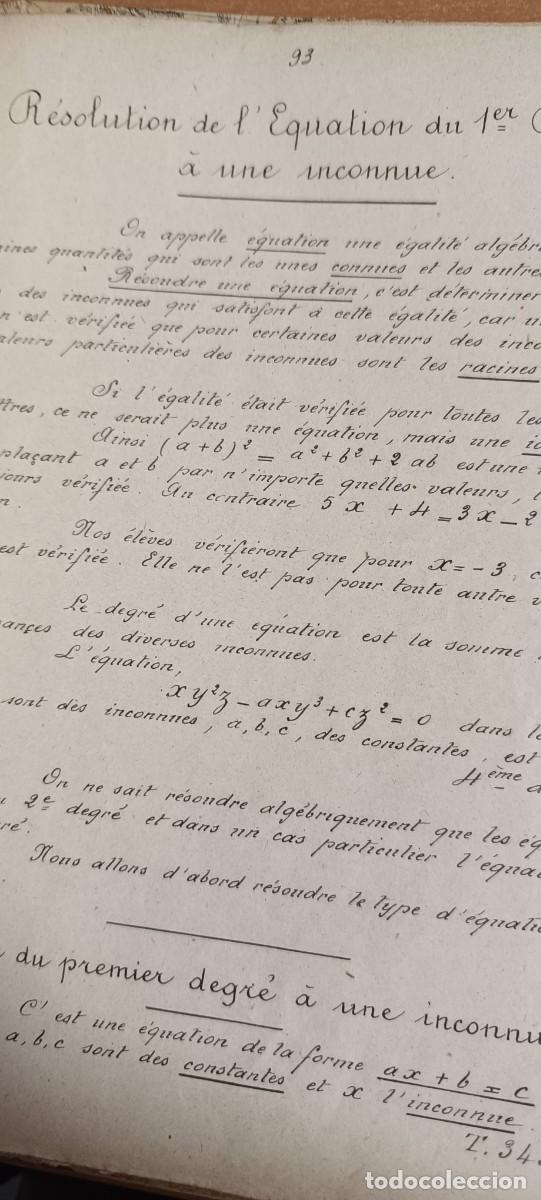 93
Résolution de l'Equation du 1er
à une inconnue.
On appelle équation une égalité algébri
ines quantités qui sont les unes connues et les autres
Résoudre une équation, c'est déterminer
des inconnues qui satisfont à cette égalité, car u
n est vérifiée que pour certaines valeurs des inco
aleurs particulières des inconnues sont les racines
Si l'égalité était vérifiée pour toutes les
ttres, ce ne serait plus une équation, mais une id
Ainsi (a+b)² = a² + b² + 2 ab est une
plaçant a et b par n'importe quelles valeurs, l
jours vérifiée. Au contraire 5x + 4 = 3x - 2
n.
Nos élèves vérifieront que pour x = - 3, c
est vérifiée. Elle ne l'est pas pour toute autre v
Le degré d'une équation est la somme
ances des diverses inconnues.
L'équation,
xy²z - axy³ + cz² = 0 dans la
sont des inconnues, a, b, c, des constantes, est
4ème d
On ne sait résoudre algébriquement que les éq
u 2e degré et dans un cas particulier l'équa
ré.
Nous allons d'abord résoudre le type d'équatio
du premier degré à une inconnu
C'est une équation de la forme ax + b = c
a, b, c sont des constantes et x l'inconnue.
T. 343
todocoleccion